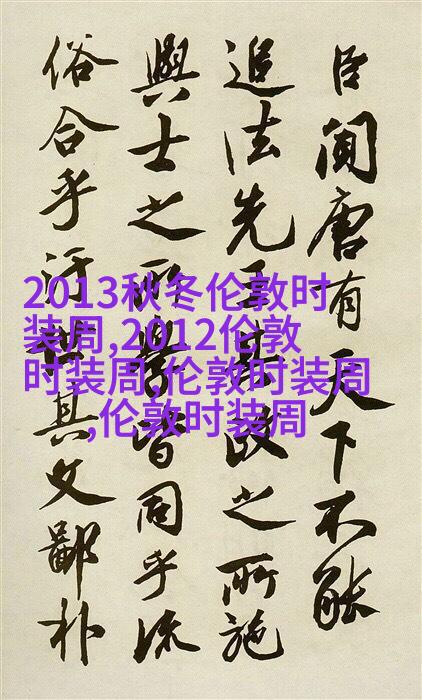 臣聞唐有天下不能
追法先王其政之所施
與士之所皆同乎流
俗合乎汙其文鄙朴
2013秋冬伦敦时
装周,2012伦敦
时装周,伦敦时装周
,伦敦时装周